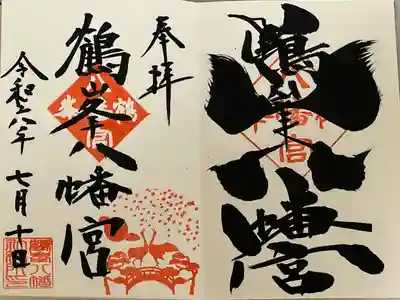 鶴峯八幡宮
奉拝
鶴峯八幡宮
令和六年 七月十日